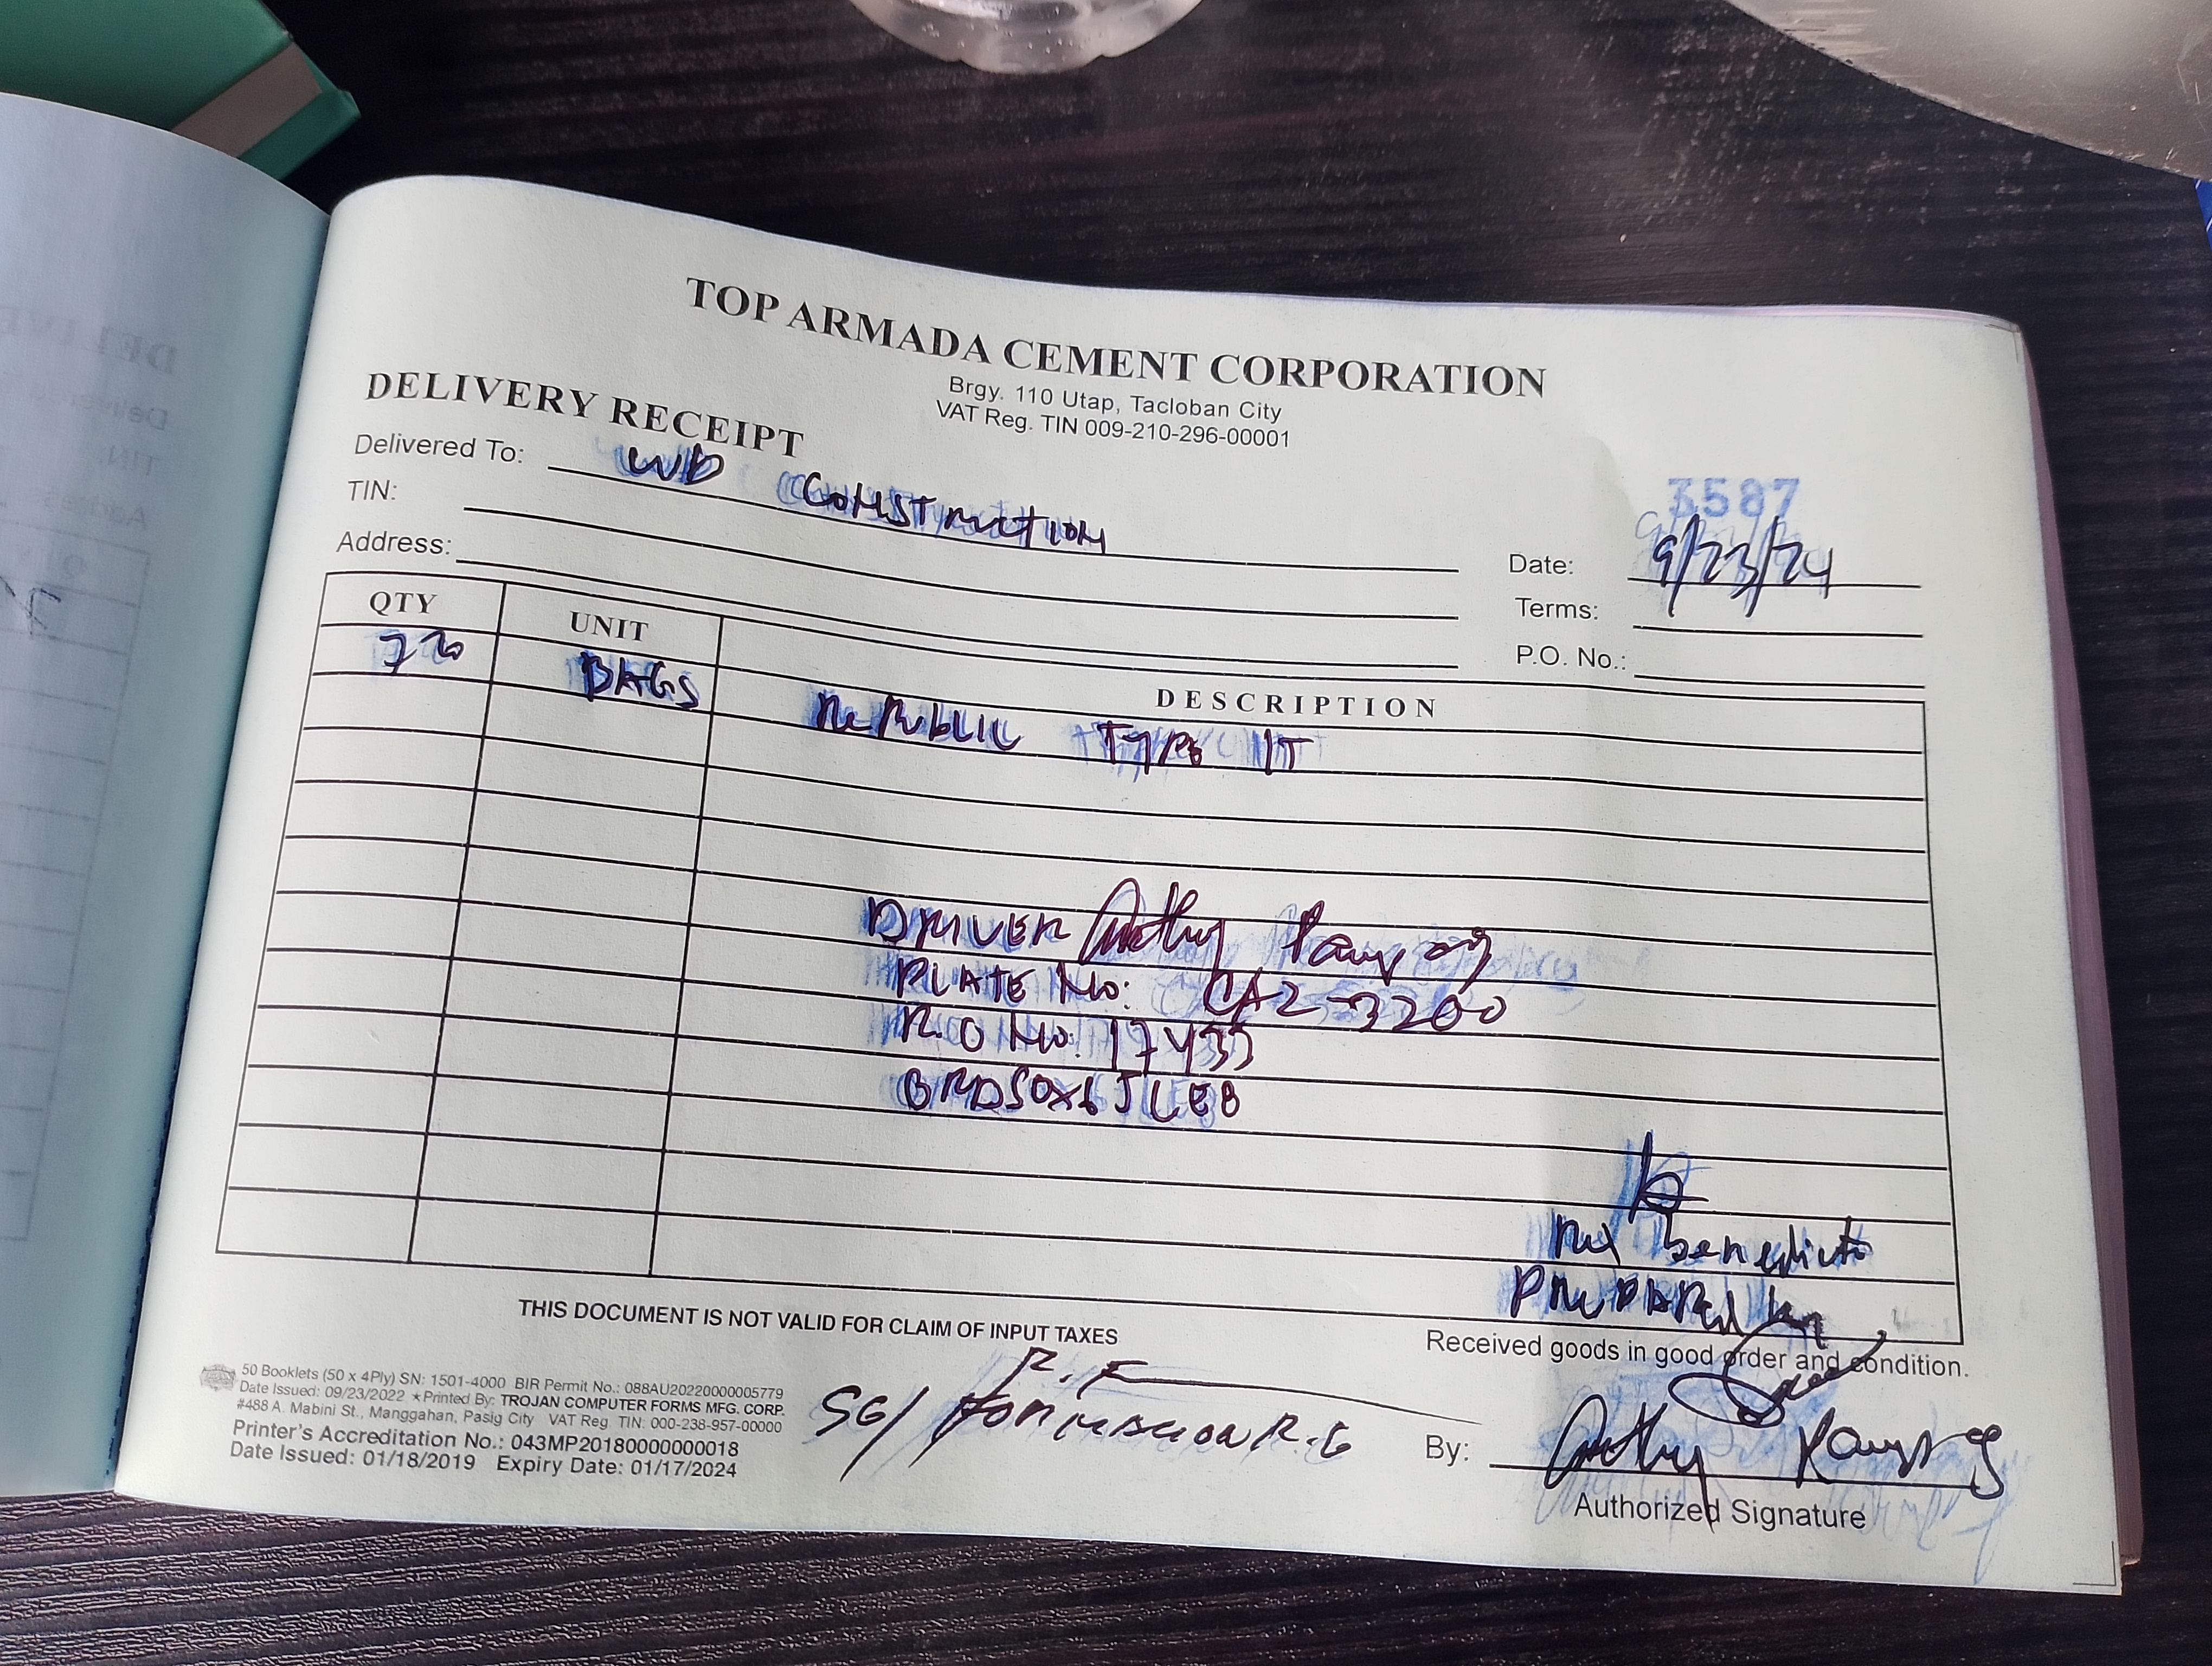 TOP ARMADA CEMENT CORPORATION
Brgy. 110 Utap, Tacloban City
VAT Reg. TIN 009-210-296-00001
DELIVERY RECEIPT
3587
Delivered To: WD CONSTRUCTION
TIN:
Address:
Date: 9/23/24
Terms:
P.O. No.:
QTY UNIT DESCRIPTION
720 BAGS REPUBLIC TYPE 1T
DRIVER
PLATE No: CAZ-3200
R.O No: 17433
BRDSOX6JLEB
benedicto
PREPARED
THIS DOCUMENT IS NOT VALID FOR CLAIM OF INPUT TAXES
Received goods in good order and condition.
50 Booklets (50 x 4Ply) SN: 1501-4000 BIR Permit No.: 088AU20220000005779
Date Issued: 09/23/2022 ★Printed By: TROJAN COMPUTER FORMS MFG. CORP.
#488 A. Mabini St., Manggahan, Pasig City VAT Reg. TIN: 000-238-957-00000
Printer's Accreditation No.: 043MP20180000000018
Date Issued: 01/18/2019 Expiry Date: 01/17/2024
SG/
By:
Authorized Signature